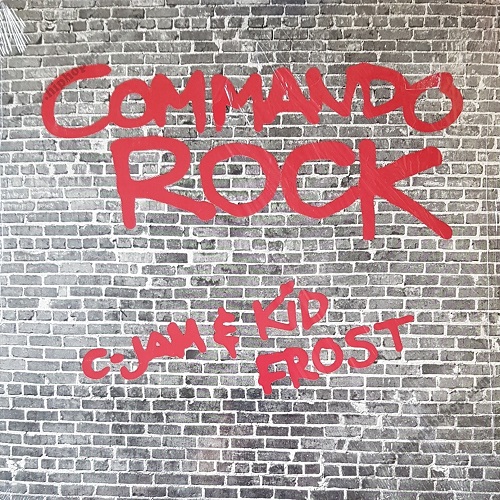 COMMANDO
ROCK
C-JAM & KiD
FROST